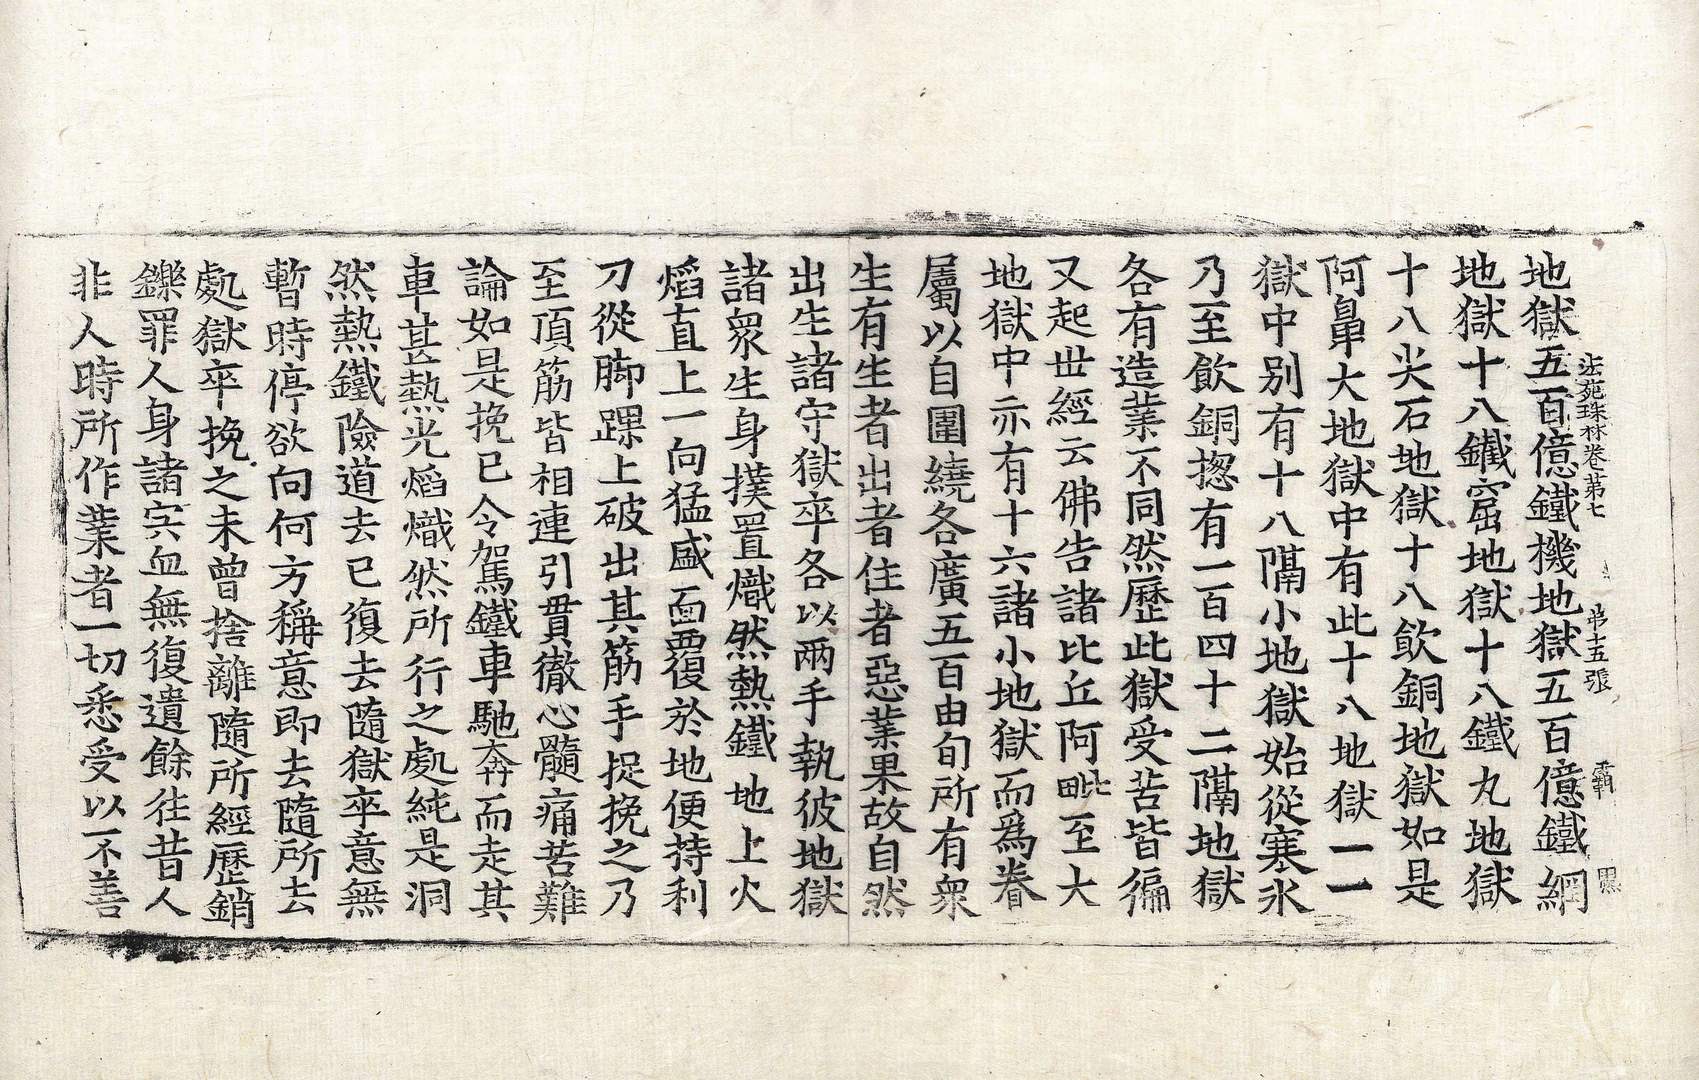 法苑珠林卷第七 第十五張 覇
地獄五百億鐵機地獄五百億鐵網
地獄十八鐵窟地獄十八鐵丸地獄
十八尖石地獄十八飲銅地獄如是
阿鼻大地獄中有此十八地獄一一
獄中別有十八隔小地獄始從寒氷
乃至飲銅揔有一百四十二隔地獄
各有造業不同然歷此獄受苦皆徧
又起丗經云佛告諸比丘阿毗至大
地獄中亦有十六諸小地獄而爲眷
屬以自圍繞各廣五百由旬所有衆
生有生者出者住者惡業果故自然
出生諸守獄卒各以兩手執彼地獄
諸衆生身撲置熾然熱鐵地上火
焰直上一向猛盛面覆於地便持利
刀從脚踝上破出其筋手捉挽之乃
至頂筋皆相連引貫徹心髓痛苦難
論如是挽已令駕鐵車馳奔而走其
車甚熱光焰熾然所行之處純是洞
然熱鐵險道去已復去隨獄卒意無
暫時停欲向何方稱意即去隨所去
處獄卒挽之未曾捨離隨所經歷銷
鑠罪人身諸宍血無復遺餘往昔人
非人時所作業者一切悉受以不善